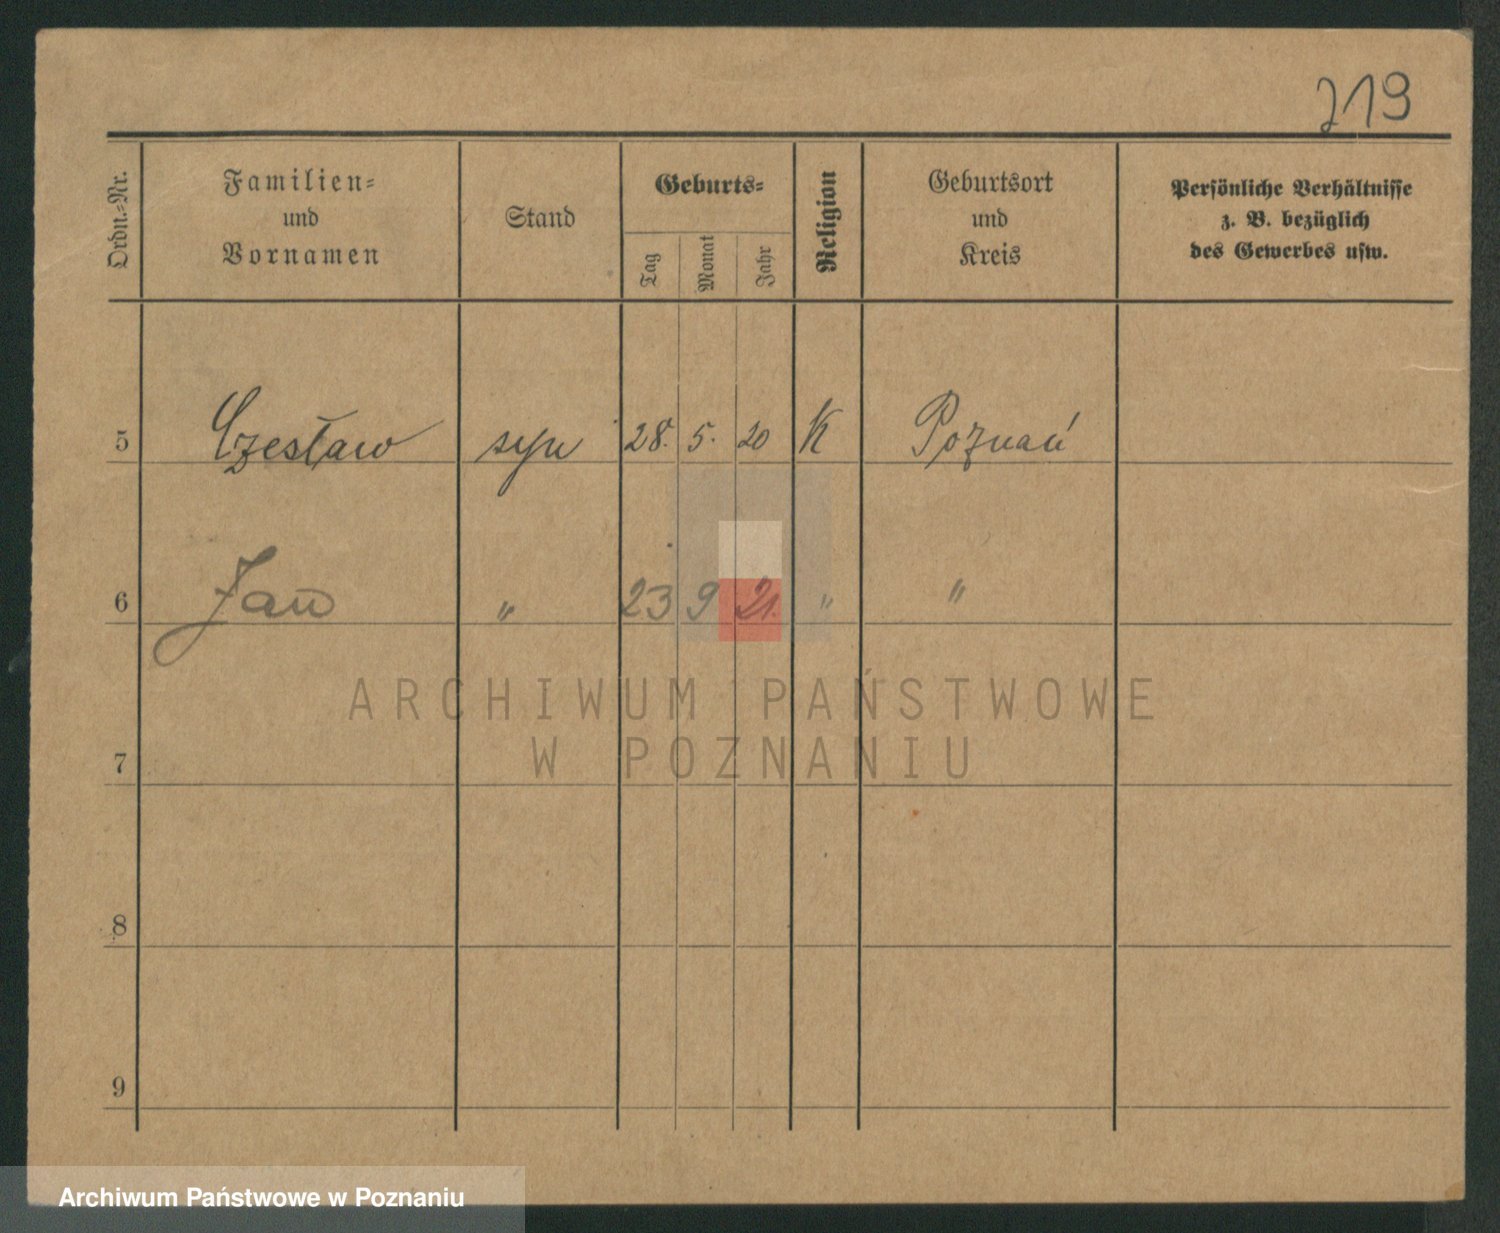 219
Ordn.-Nr.
Familien-
und
Vornamen
Stand
Geburts-
Tag
Monat
Jahr
Religion
Geburtsort
und
Kreis
Persönliche Verhältnisse
z. B. bezüglich
des Gewerbes usw.
5 Czesław syn 28. 5. 20 K Poznań
6 Jan „ 23 9 21. „ „
ARCHIWUM PAŃSTWOWE
W POZNANIU
7
8
9
Archiwum Państwowe w Poznaniu